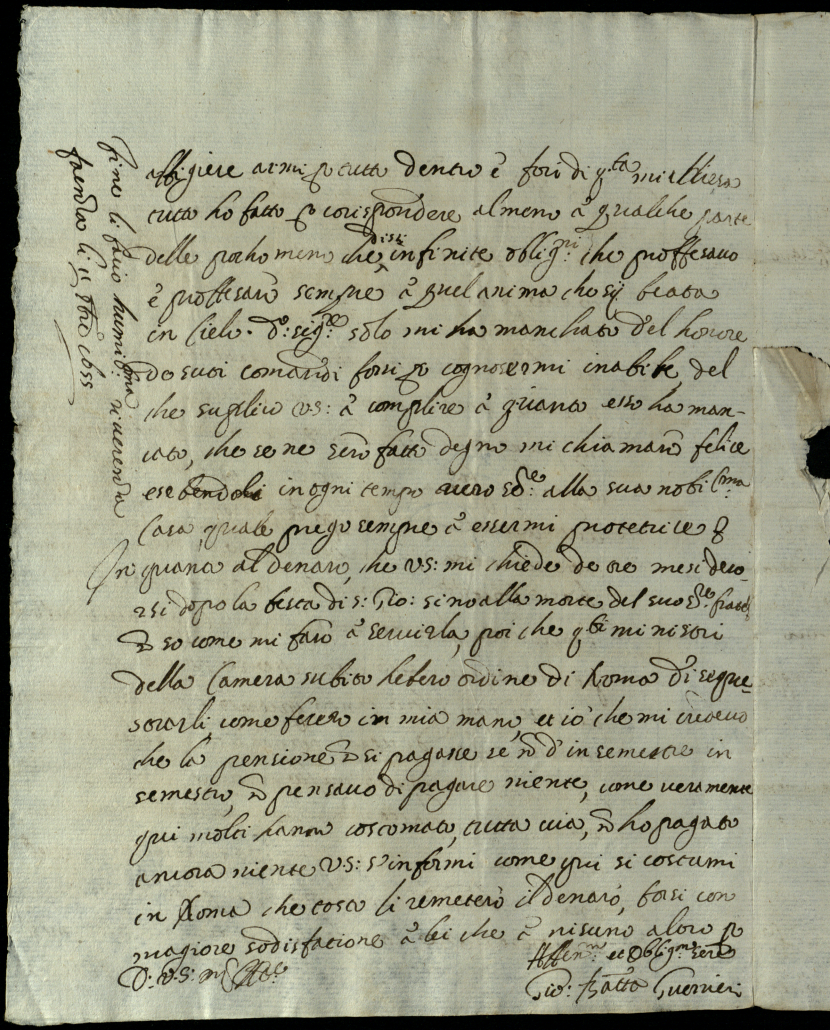 affigiere armi p tutto dentro è fori di q.ta mia chiesa
tutto ho fatto p corispondere almeno à qualche parte
delle pocho meno che dissi infinite oblig.ni che proffesavo
è proffesarò sempre à quel anima che sij beata
in Cielo. d.o sig.re solo mi ha manchato del honore
de suoi comandi forsi p cognoscermi inabile, del
che suplico VS: à complire à quanto esso ha man-
cato, che se ne serò fatto degno mi chiamarò felice
esebendoli in ogni tempo vero se.re alla sua nobil.ma
Casa, quale prego sempre à essermi protetrice
In quanto al denaro, che VS: mi chiede de tre mesi deco-
rsi dopo la festa di s: Gio: sino alla morte del suo s.re frate.
nō so come mi farò à servirla, poi che q.ti ministri
della Camera subito hebero ordine di Roma di seque-
strarli, come fecero in mia mano, et io che mi credevo
che la pensione nō si pagasse se nō d'in semestre in
semestro, nō pensavo di pagare niente, come veramente
qui molti hanno costomato, tutta via, nō ho pagato
ancora niente VS: s'informi come qui si costumi
in Roma che tosto li remeterò il denaro, forsi con
magiore sodisfatione à lei che à nisuno altro p
D: V:S: m
Affen.mo et Oblig.mo Ser.re
Gio: Batta Guerrieri
fine li facio humil.ma riverenza